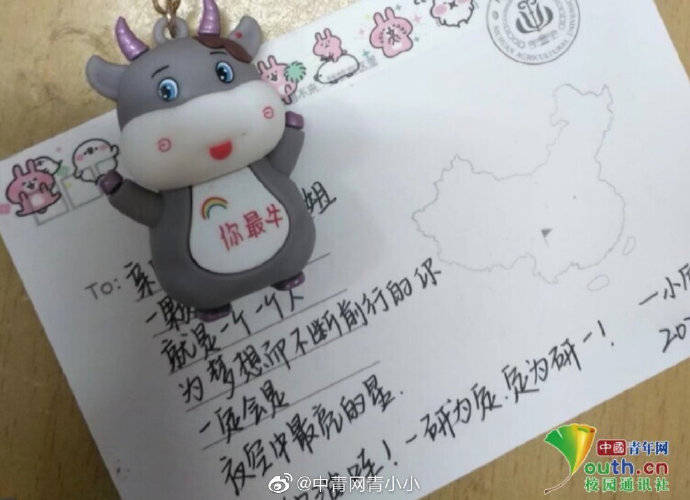 你最牛
姐
To: 亲
一颗
就是一个一个人
为梦想而不断前行的你
一定会是
夜空中最亮的星.
！一研为定.定为研一！
一小
202
@中青网青小小
中国青年网
youth.cn
校园通讯社